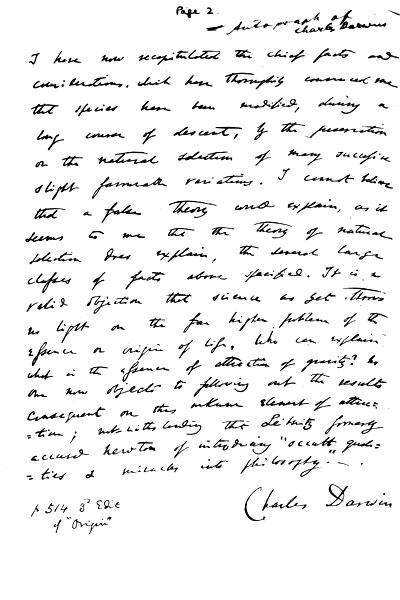 Page 2.
Autograph of
Charles Darwin
I have now recapitulated the chief facts and
considerations, which have thoroughly convinced me
that species have been modified, during a
long course of descent, by the preservation
or the natural selection of many successive
slight favourable variations. I cannot believe
that a false theory would explain, as it
seems to me that the theory of natural
selection does explain, the several large
classes of facts above specified. It is a
valid objection that science as yet throws
no light on the far higher problem of the
essence or origin of life. Who can explain
what is the essence of attraction of gravity? No
one now objects to following out the results
consequent on this unknown element of attrac-
-tion; notwithstanding that Leibnitz formerly
accused Newton of introducing "occult quali-
-ties & miracles into philosophy".—
p 514 3d Edit
of "Origin"
Charles Darwin